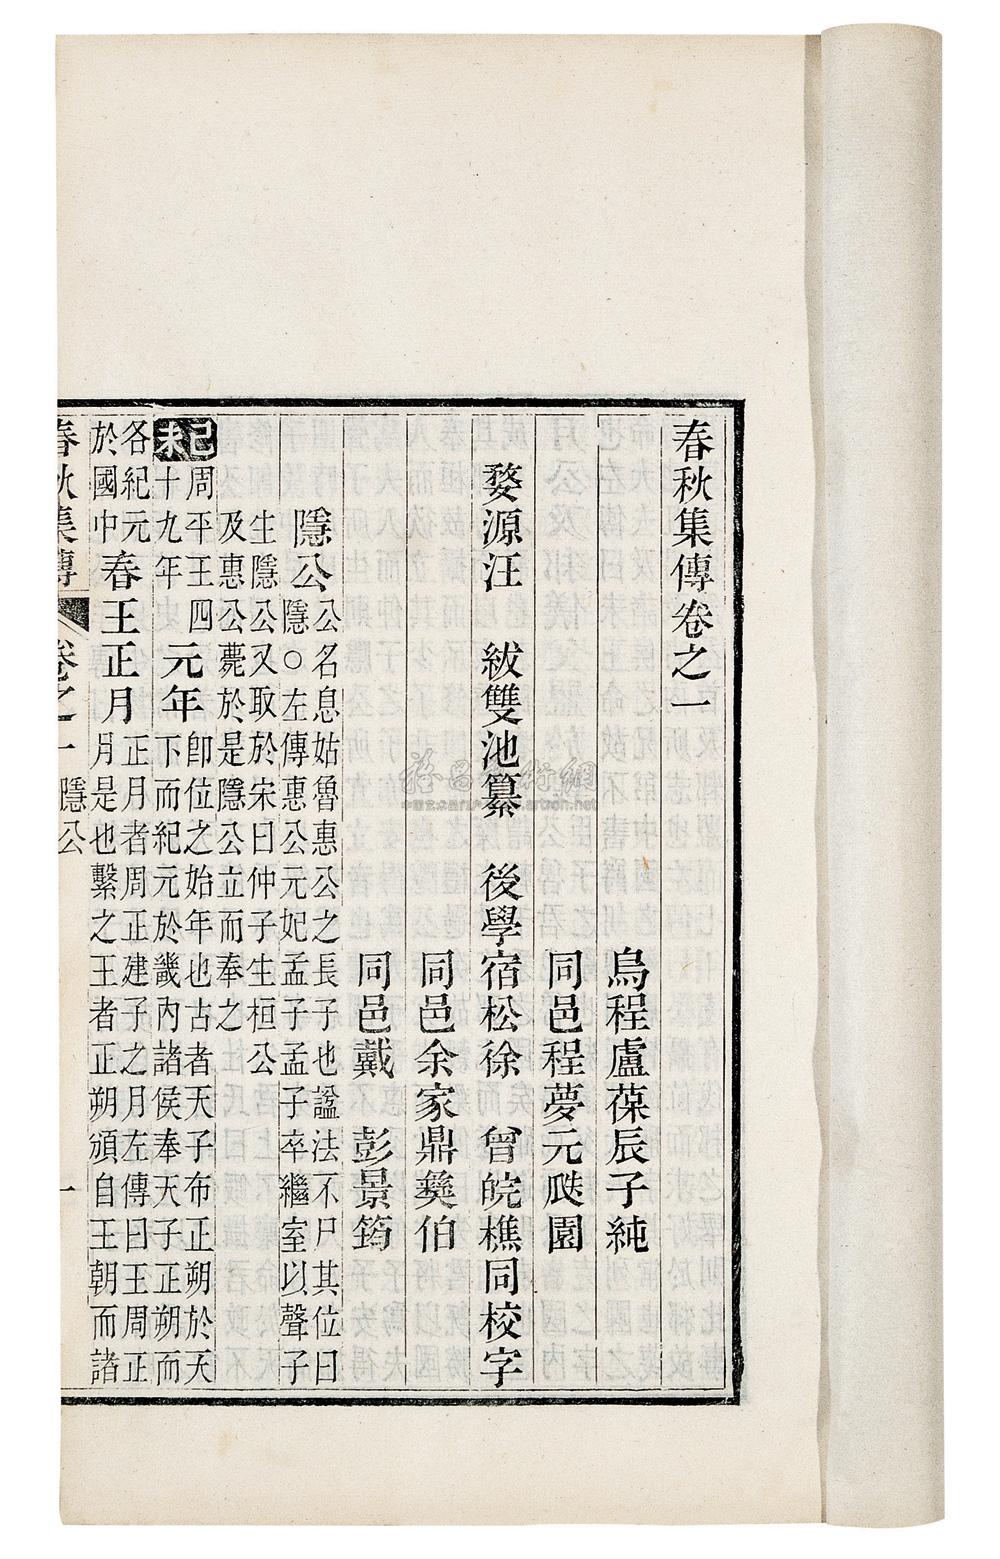 春秋集傳卷之一
烏程盧葆辰子純
同邑程夢元園
婺源汪　紱雙池纂　後學宿松徐　曾皖樵同校字
同邑余家鼎彝伯
同邑戴　彭景筠
隱公
公名息姑魯惠公之長子也諡法不尸其位曰
隱○左傳惠公元妃孟子孟子卒繼室以聲子
生隱公又取於宋曰仲子生桓公
及惠公薨於是隱公立而奉之
己未
周平王四
十九年
元年
卽位之始年也古者天子布正朔於天
下而紀元於畿內諸侯奉天子正朔而
各紀元
於國中
春王正月
正月者周正建子之月左傳曰王周正
月是也繫之王者正朔頒自王朝而諸
春秋集傳　卷之一　隱公　一